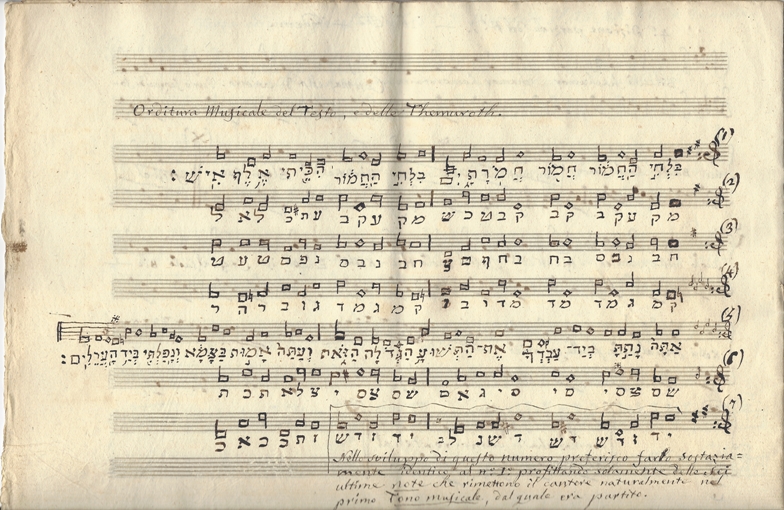 Orditura Musicale del Testo, e delle Themuroth.
(1) בִּלְחִי הַחֲמוֹר חֲמוֹר חֲמֹרָתָיִם בִּלְחִי הַחֲמוֹר הִכֵּיתִי אֶלֶף אִישׁ :
(2) מק עקב קב קבטכש מק עקב עתכ לאל
(3) חב נבס בח חב נבס נפסטעט
(4) קמ גמד מד מדויב קמ גמד גוברהר
(5) אַתָּה נָתַתָּ בְיַד־עַבְדְּךָ אֶת־הַתְּשׁוּעָה הַגְּדֹלָה הַזֹּאת וְעַתָּה אָמוּת בַּצָּמָא וְנָפַלְתִּי בְּיַד הָעֲרֵלִים :
(6) שס צסי סי סיגאם שס צסי צלאתכת
(7) יד זדש דש דשנלב יד זדש
Nello sviluppo di questo numero preferisco farlo
identico al nº 1º profittando solamente delle
ultime note che rimettono il cantore naturalmente nel
primo Tono musicale, dal quale era partito.